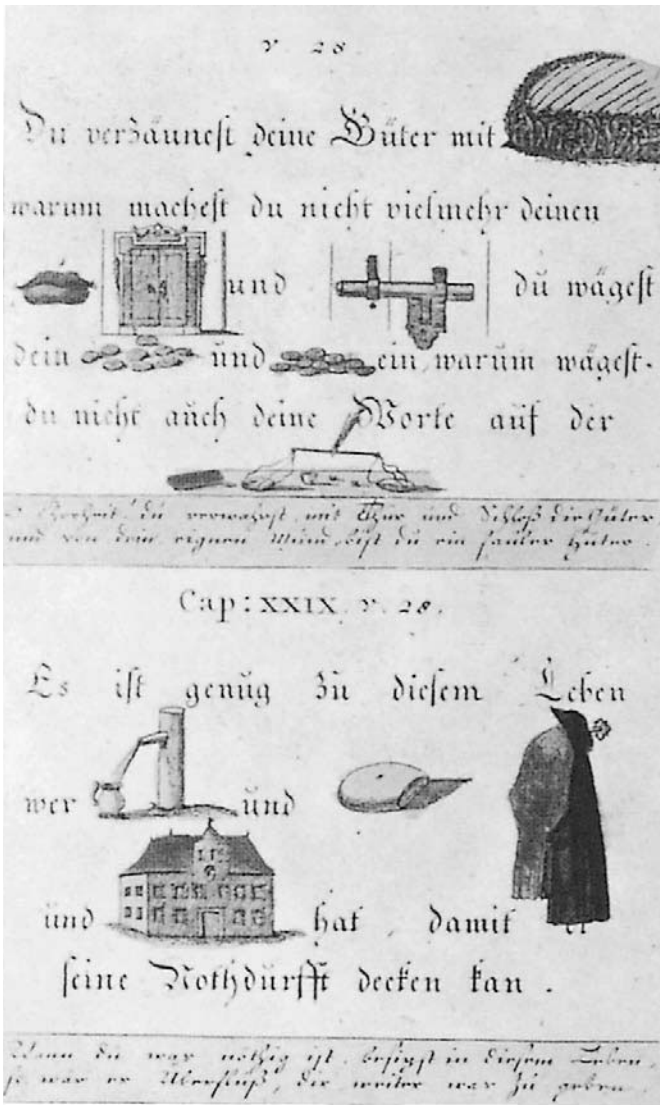 v. 28.
Du verzäunest deine Güter mit
warum machest du nicht vielmehr deinen
und du wägest
dein und ein, warum wägest-
du nicht auch deine Worte auf der
du verwahrst, mit Thür und Schloß die Güter
und von dem eignen Mund, bist du ein fauler Hüter.
Cap: XXIX. v. 28.
Es ist genug zu diesem Leben
wer und
und hat, damit er
seine Nothdurfft decken kan.
Wann du was nöthig ist, besizst in diesem Leben,
so was zu geben.